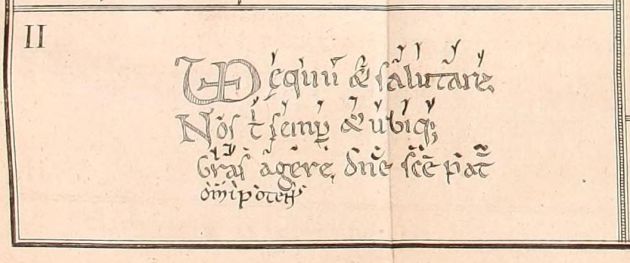 II
VD ęquū & salutare,
Nos t̄ semꝑ & ubiq;
Gr̄as agere, dn̄e sc̄e pat̄
om̄ipotens